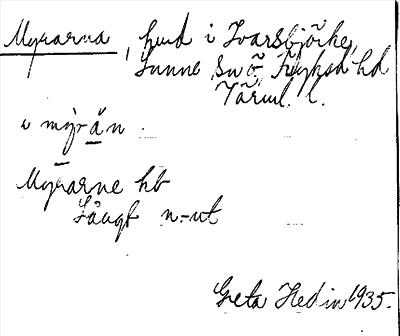 Myrarna, hmd i Ivarsbjörke,
Sunne sn Ö. Fryksd. hd
Värml. l.
i mỳrån.
Myrarne hb
Långt n-ut
Greta Hedin 1935.